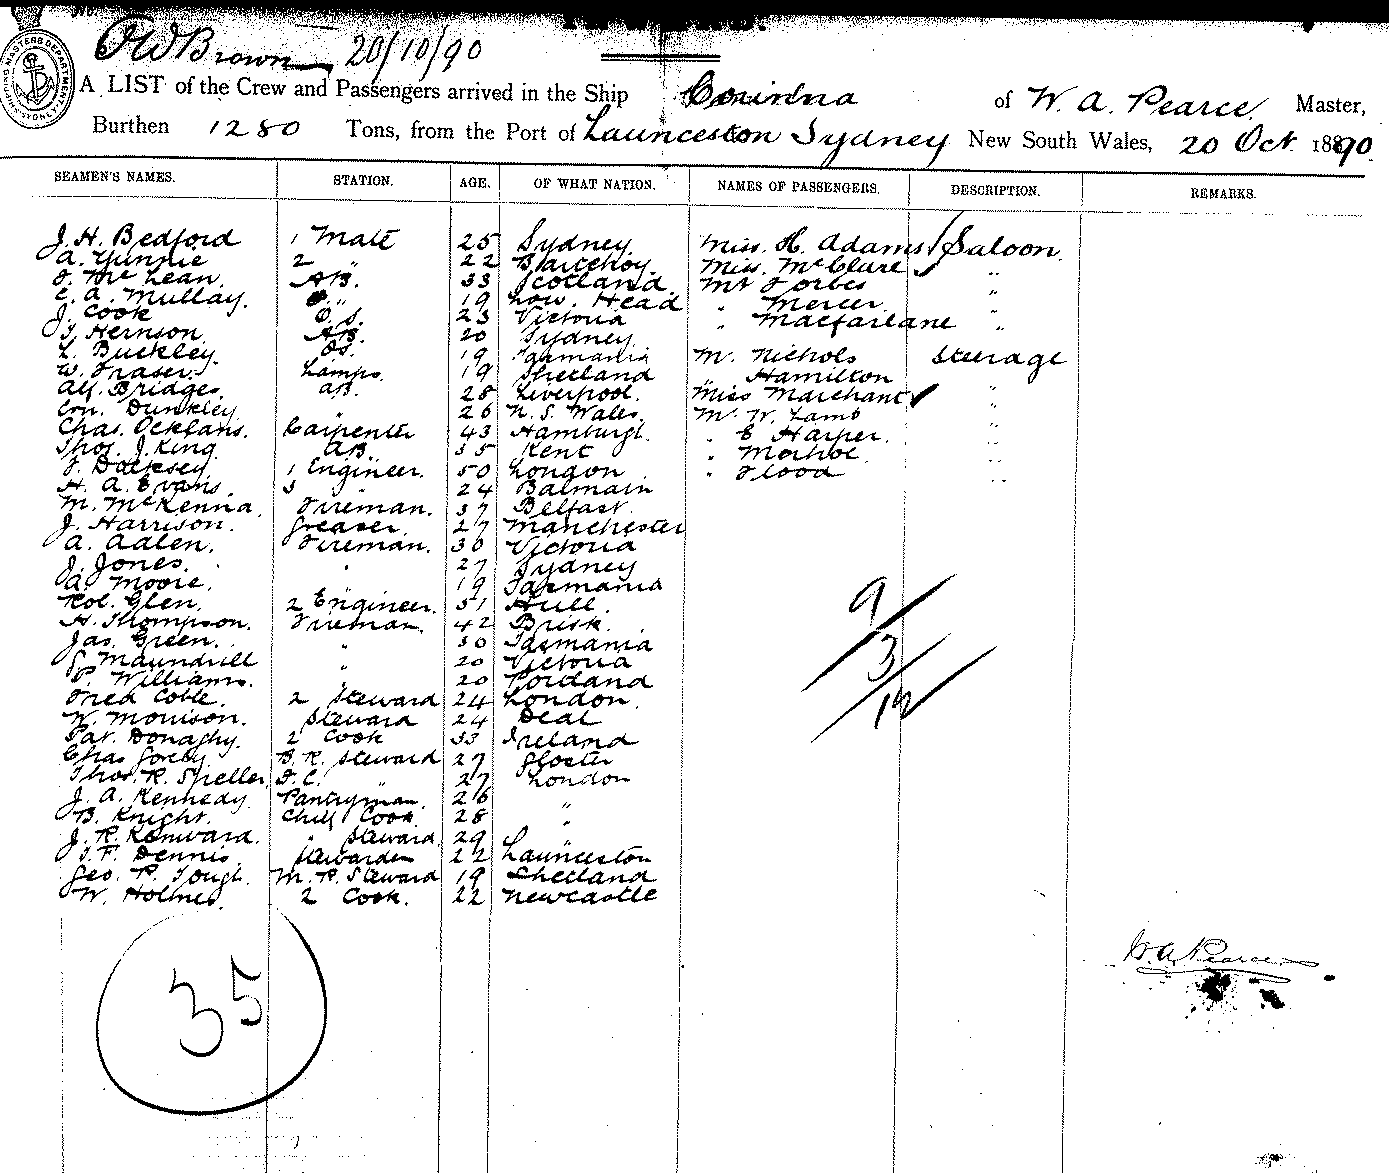 SHIPPING MASTERS DEPARTMENT SYDNEY
Brown 20/10/90
A LIST of the Crew and Passengers arrived in the Ship Corinna of W. A. Pearce, Master,
Burthen 1280 Tons, from the Port of Launceston Sydney New South Wales, 20 Oct. 1890
SEAMEN'S NAMES. STATION. AGE. OF WHAT NATION. NAMES OF PASSENGERS. DESCRIPTION. REMARKS.
J. H. Bedford 1 Mate 25 Sydney Miss. H. Adams Saloon.
A. 2 " 22 Miss. McClure "
J. McLean AB. 33 Scotland Mr Forbes "
C. A. Mullay. " 19 Low. Head " Mercer
J. Cook O.S. 23 Victoria " Macfarlane "
J. Hernson AB. 20 Sydney
L. Buckley. OS. 19 Tasmania Mr. Nichols Steerage
W. Fraser. Lamps. 19 Shetland " Hamilton
Alf. Bridges. AB. 28 Liverpool. Miss Marchant "
Ern. Dunkley. 26 N. S. Wales. Mr W. Lamb "
Chas. Ocklans. Carpenter 43 Hamburgh. " E Harper. "
Thos. J. King AB. 35 Kent "
J. 1 Engineer. 50 London " Flood "
H. A. Evans. 3 24 Balmain
M. McKenna. Fireman. 37 Belfast.
J. Harrison. Greaser. 27 Manchester
A. Aalen. Fireman. 30 Victoria
J. Jones. " 27 Sydney
A. Moore. 19 Tasmania
Rob. Glen. 2 Engineer. 51 Hull.
H. Thompson. Fireman. 42 Brisb.
Jas. Green. " 30 Tasmania
G. Maundrill " 20 Victoria
P. Williams. 20 Portland
Fred Coble. 2 Steward 24 London.
W. Morrison. Steward 24 Deal
Pat. Donaghy. 2 Cook 33 Ireland
Chas B. R. Steward 27 Gloster
Thos. R. Speller F. C. " 27 London
J. A. Kennedy. Pantryman. 26 "
B. Knight. Chief Cook. 28 "
J. R. Kenward. " Steward. 29
J. F. Dennis. Stewardess 22 Launceston
Geo. P. Tough. M. R. Steward 19 Shetland
W. Holmes. 2 Cook. 22 Newcastle
9/
3/
12/
W. A. Pearce
35